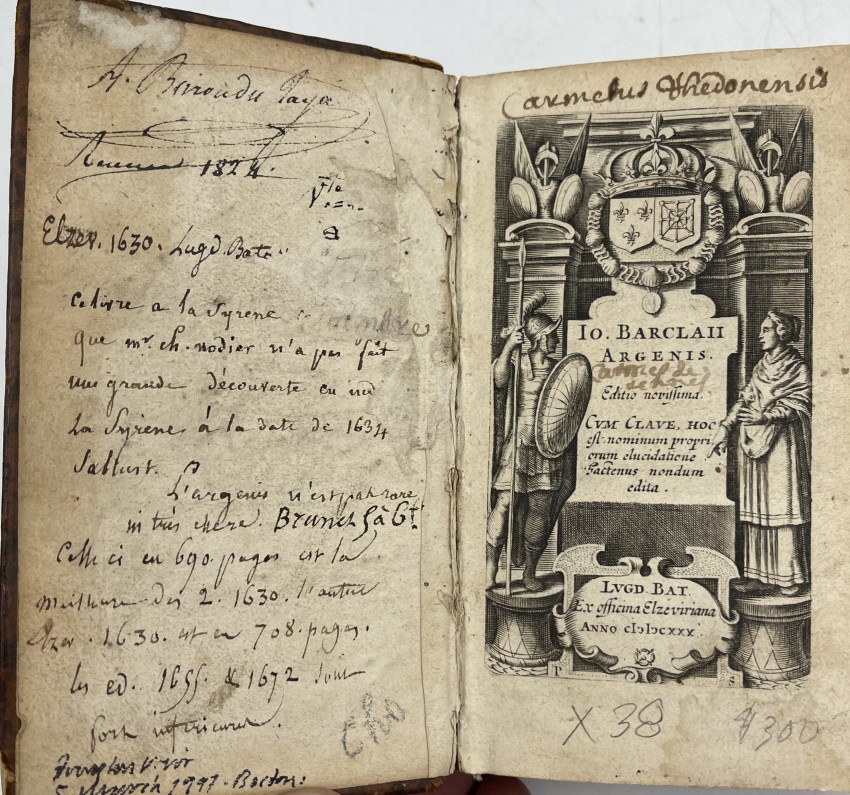 A.
1824.
Elzev. 1630. Lugd. Bat.
a
Ce livre a la Syrene
que mr. ch. nodier n'a pas fait
une grande découverte en
La Syrene à la date de 1634
Sallust.
L'argenis n'est pas rare
ni très chere. Brunet 5 à 6 f
Celle ci en 690. pages est la
meilleure des 2. 1630. l'autre
elzev. 1630. est en 708. pages.
les ed. 1655. & 1672 sont
fort inferieures.
1997. Boston.
Carmelus Rhedonensis
IO. BARCLAII
ARGENIS.
Carmes de
Editio novissima.
CVM CLAVE, HOC
est nominum propri
orum elucidatione
hactenus nondum
edita.
LVGD. BAT.
Ex officina Elzeviriana
ANNO CIↃIↃCXXX.
X 38 $300